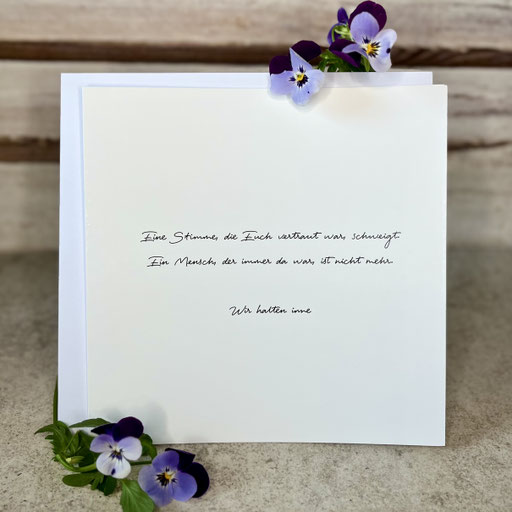 Eine Stimme, die Euch vertraut war, schweigt.
Ein Mensch, der immer da war, ist nicht mehr.
Wir halten inne